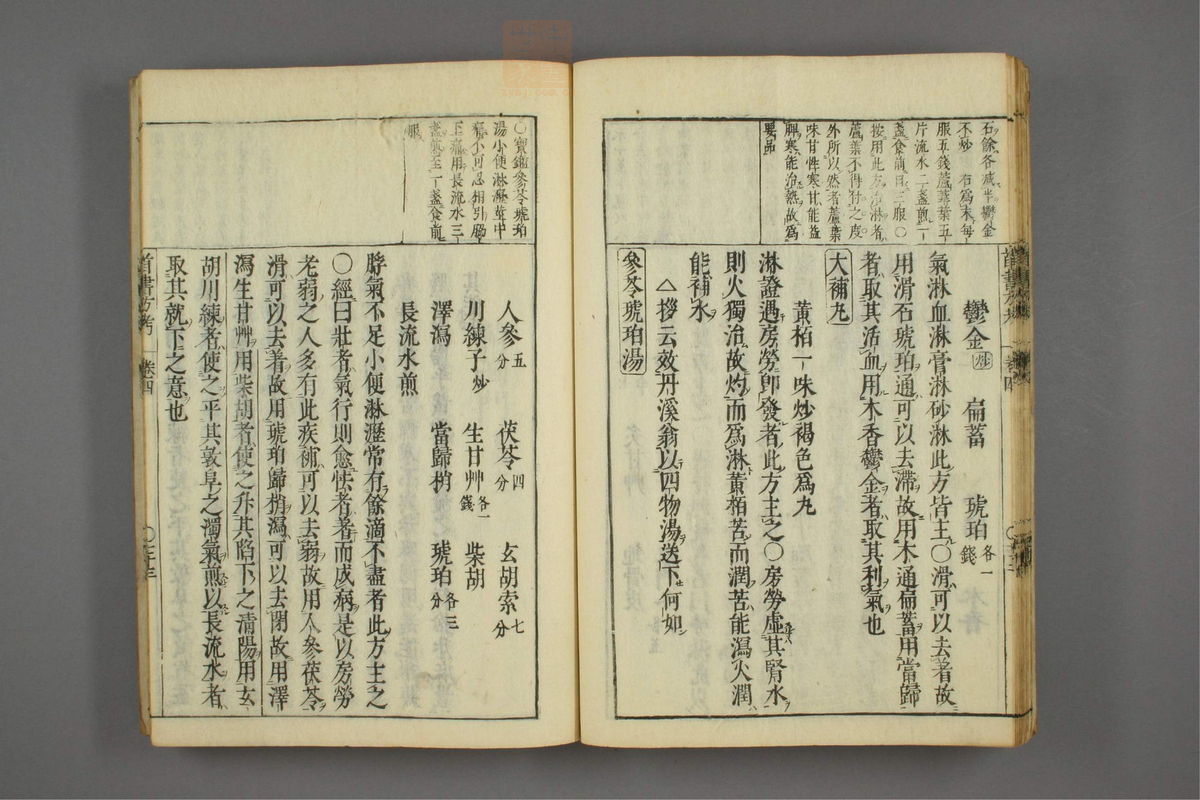 石餘各減半鬱金
不炒 右爲末每
服五錢蘆葦葉五
片流水二盞煎一
盞食前日三服〇
按用此方治淋者
蘆葉不得付之度
外所以然者蘆葉
味甘性寒甘能益
脾寒能治熱故爲
要品
鬱金炒 扁蓄 琥珀各一錢
氣淋血淋膏淋砂淋此方皆主〇滑可以去着故
用滑石琥珀通可以去滯故用木通扁蓄用當歸
者取其活血用木香鬱金者取其利氣也
大補丸
黃栢一味炒褐色爲丸
淋證遇房勞卽發者此方主之〇房勞虛其腎水
則火獨治故灼而爲淋黃栢苦而潤苦能瀉火潤
能補水
△拶云效丹溪翁以四物湯送下何如
參苓琥珀湯
〇寶鑑參苓琥珀
湯小便淋瀝莖中
痛不可忍相引脇
下痛用長流水三
盞煎至一盞食前
服
人參五分 茯苓四分 玄胡索七分
川練子炒 生甘艸各一錢 柴胡
澤瀉 當歸梢 琥珀各三分
長流水煎
脬氣不足小便淋瀝常有餘滴不盡者此方主之
〇經曰壯者氣行則愈怯者著而成病是以房勞
老弱之人多有此疾補可以去弱故用人參茯苓
滑可以去着故用琥珀歸梢瀉可以去閉故用澤
瀉生甘艸用柴胡者使之升其陷下之清陽用玄
胡川練者使之平其敦阜之濁氣煎以長流水者
取其就下之意也
首書方考 卷四 〇三十三